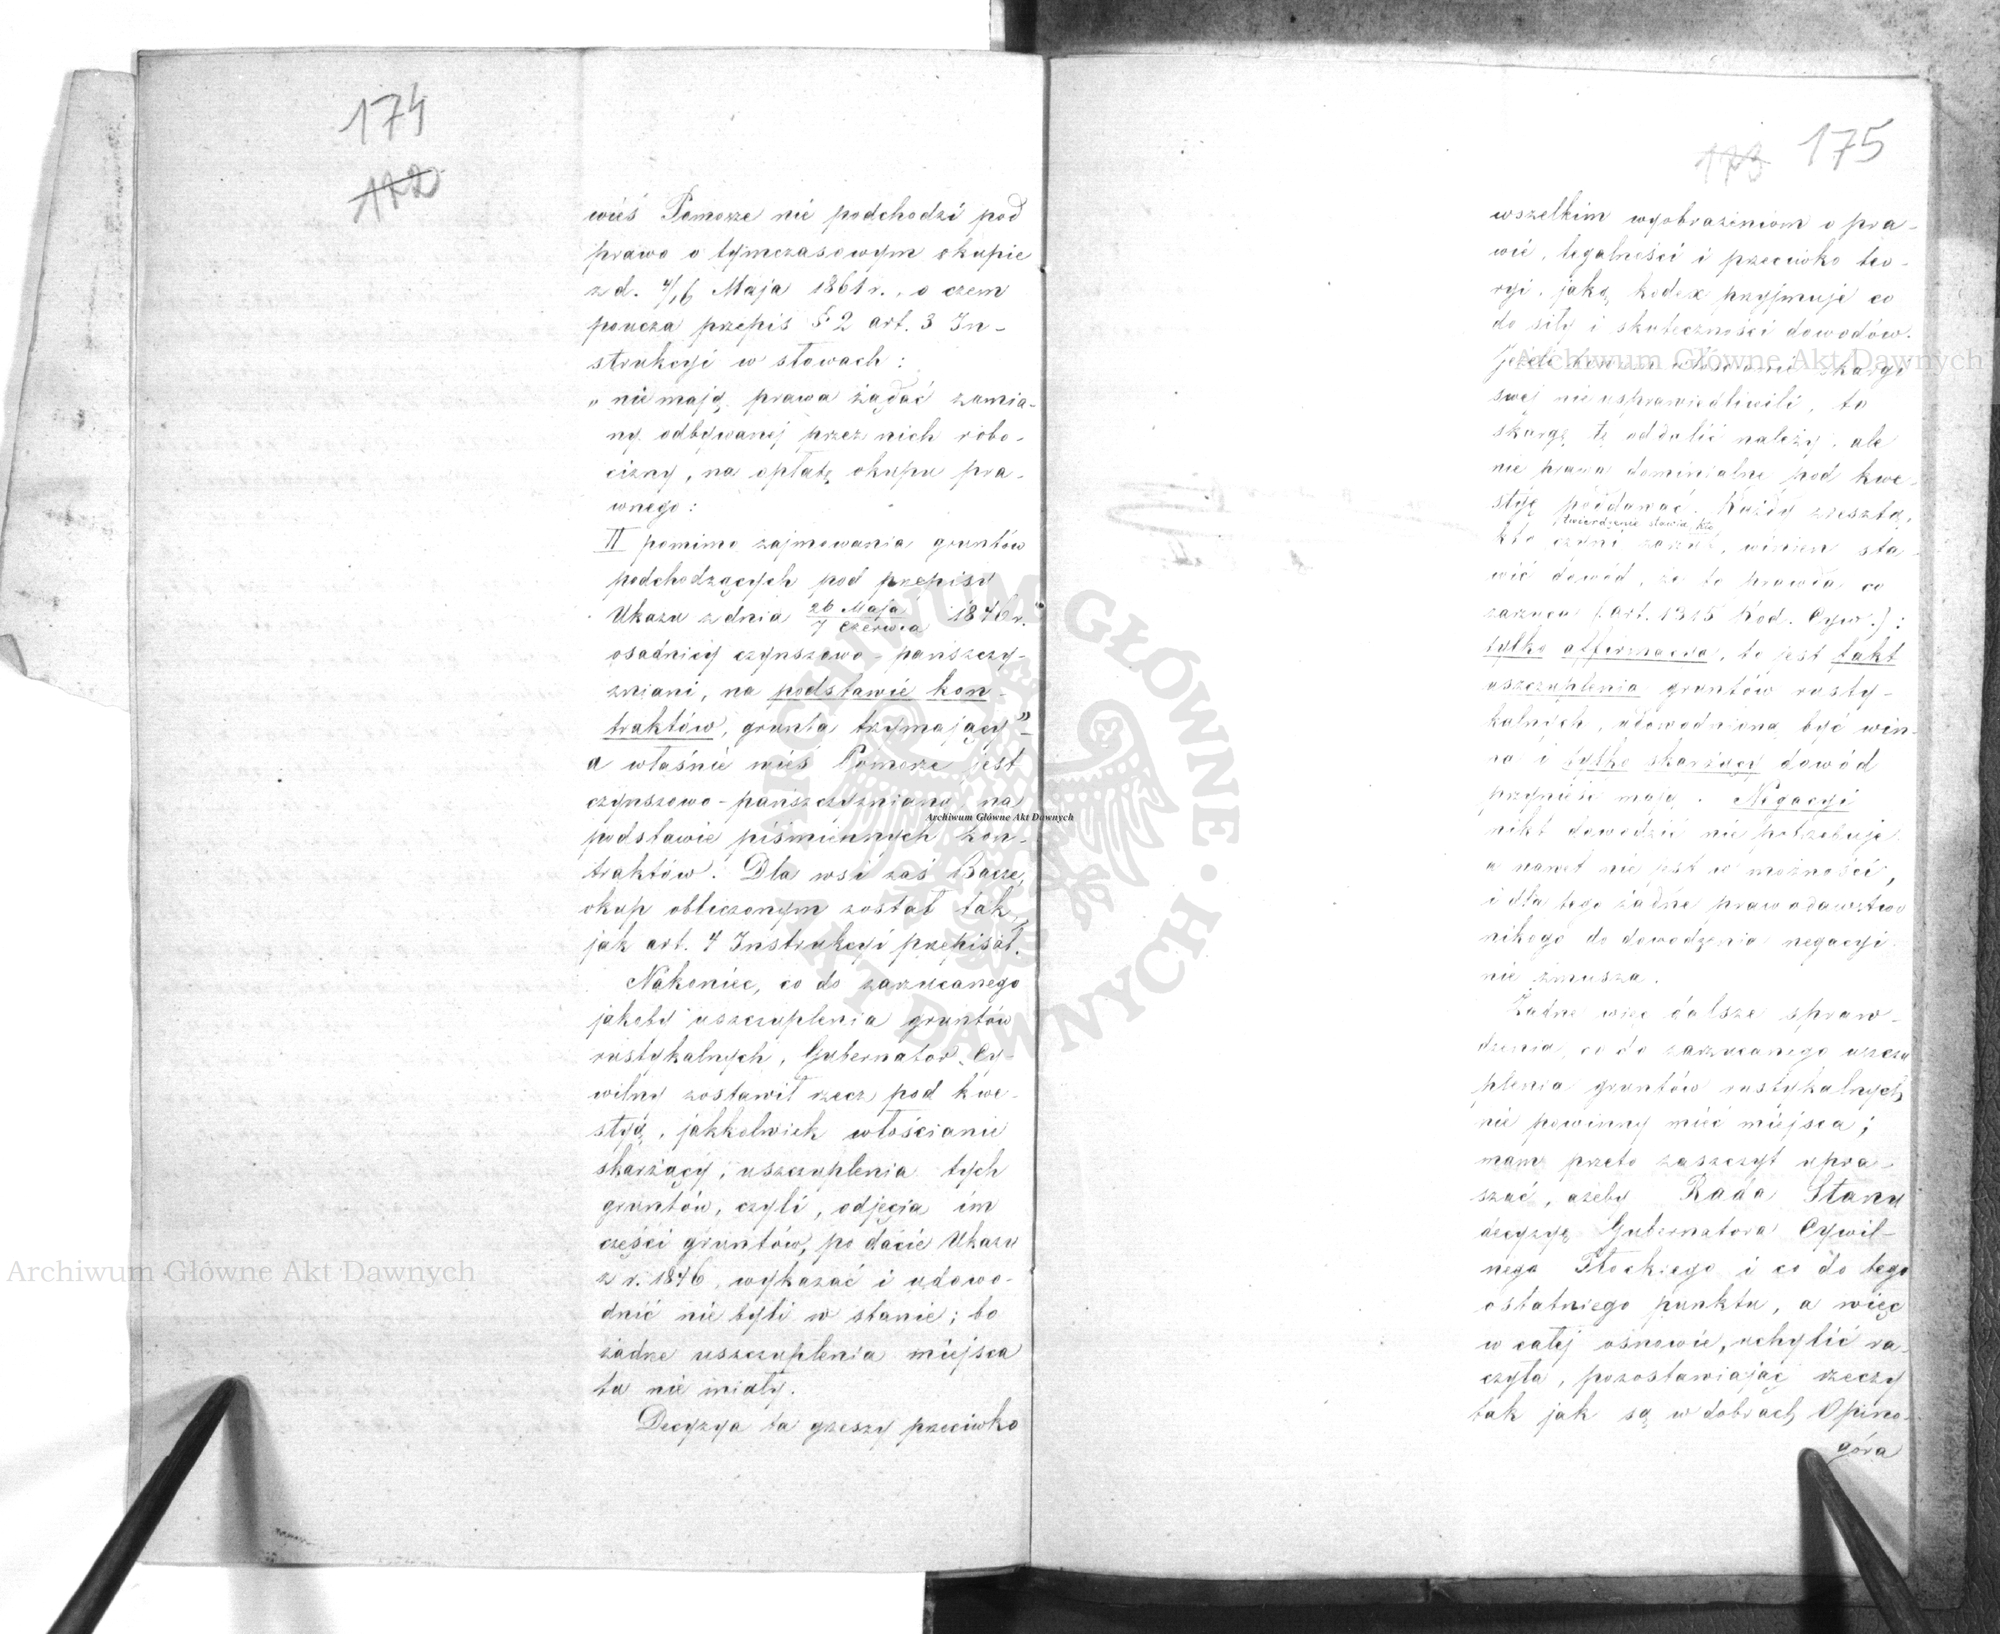 174
172
wieś Pomorze nie podchodzi pod
prawo o tymczasowym okupie
z d. 4/16 Maja 1861 r., o czem
poucza przepis § 2 art. 3 In-
strukcyi w słowach:
„nie mają prawa żądać zamia-
ny odbywanej przez nich robo-
cizny, na opłatę okupu pra-
wnego:
II pomimo zajmowania gruntów
podchodzących pod przepisy
Ukazu z dnia 26 Maja/7 Czerwca 1846 r.
osadnicy czynszowo-pańszczy-
źniani, na podstawie kon-
traktów, grunta trzymający"-
a właśnie wieś Pomorze jest
czynszowo-pańszczyźnianą na
podstawie piśmiennych kon-
traktów. Dla wsi zaś Bacze,
okup obliczonym został tak,
jak art. 4 Instrukcyi przepisał.
Nakoniec, co do zarzucanego
jakoby uszczuplenia gruntów
rustykalnych, Gubernator Cy-
wilny zostawił rzecz pod kwe-
styą, jakkolwiek włościanie
skarżący, uszczuplenia tych
gruntów, czyli, odjęcia im
części gruntów, po dacie Ukazu
z r. 1846, wykazać i udowo-
dnić nie byli w stanie; bo
żadne uszczuplenia miejsca
tu nie miały.
Decyzya ta grzeszy przeciwko
173 175
wszelkim wyobrażeniom o pra-
wie, legalności i przeciwko teo-
ryi, jaką kodex przyjmuje co
do siły i skuteczności dowodów.
Jeżeli bowiem włościanie skargi
swej nie usprawiedliwili, to
skargę tę oddalić należy, ale
nie prawa dominialne pod kwe-
styę poddawać. Każdy zresztą,
twierdzenie stawia, kto
kto czyni zarzut, winien sta-
wić dowód, że to prawda co
zarzuca (Art. 1315 Kod. Cyw.):
tylko affirmacya, to jest fakt
uszczuplenia gruntów rusty-
kalnych, udowodnioną być win-
na i tylko skarżący dowód
przynieść mają. Negacyi
nikt dowodzić nie potrzebuje
a nawet nie jest w możności,
i dla tego żadne prawodawstwo
nikogo do dowodzenia negacyi
nie zmusza.
Żadne więc dalsze spraw-
dzenia, co do zarzucanego uszczu
plenia gruntów rustykalnych,
nie powinny mieć miejsca;
mam przeto zaszczyt upra-
szać, ażeby Rada Stanu
decyzyę Gubernatora Cywil-
nego Płockiego i co do tego
ostatniego punktu, a więc
w całej osnowie, uchylić ra-
czyła, pozostawiając rzeczy
tak jak są w dobrach Opino-
góra
Archiwum Główne Akt Dawnych
Archiwum Główne Akt Dawnych
Archiwum Główne Akt Dawnych
ARCHIWUM GŁÓWNE · AKT DAWNYCH ·